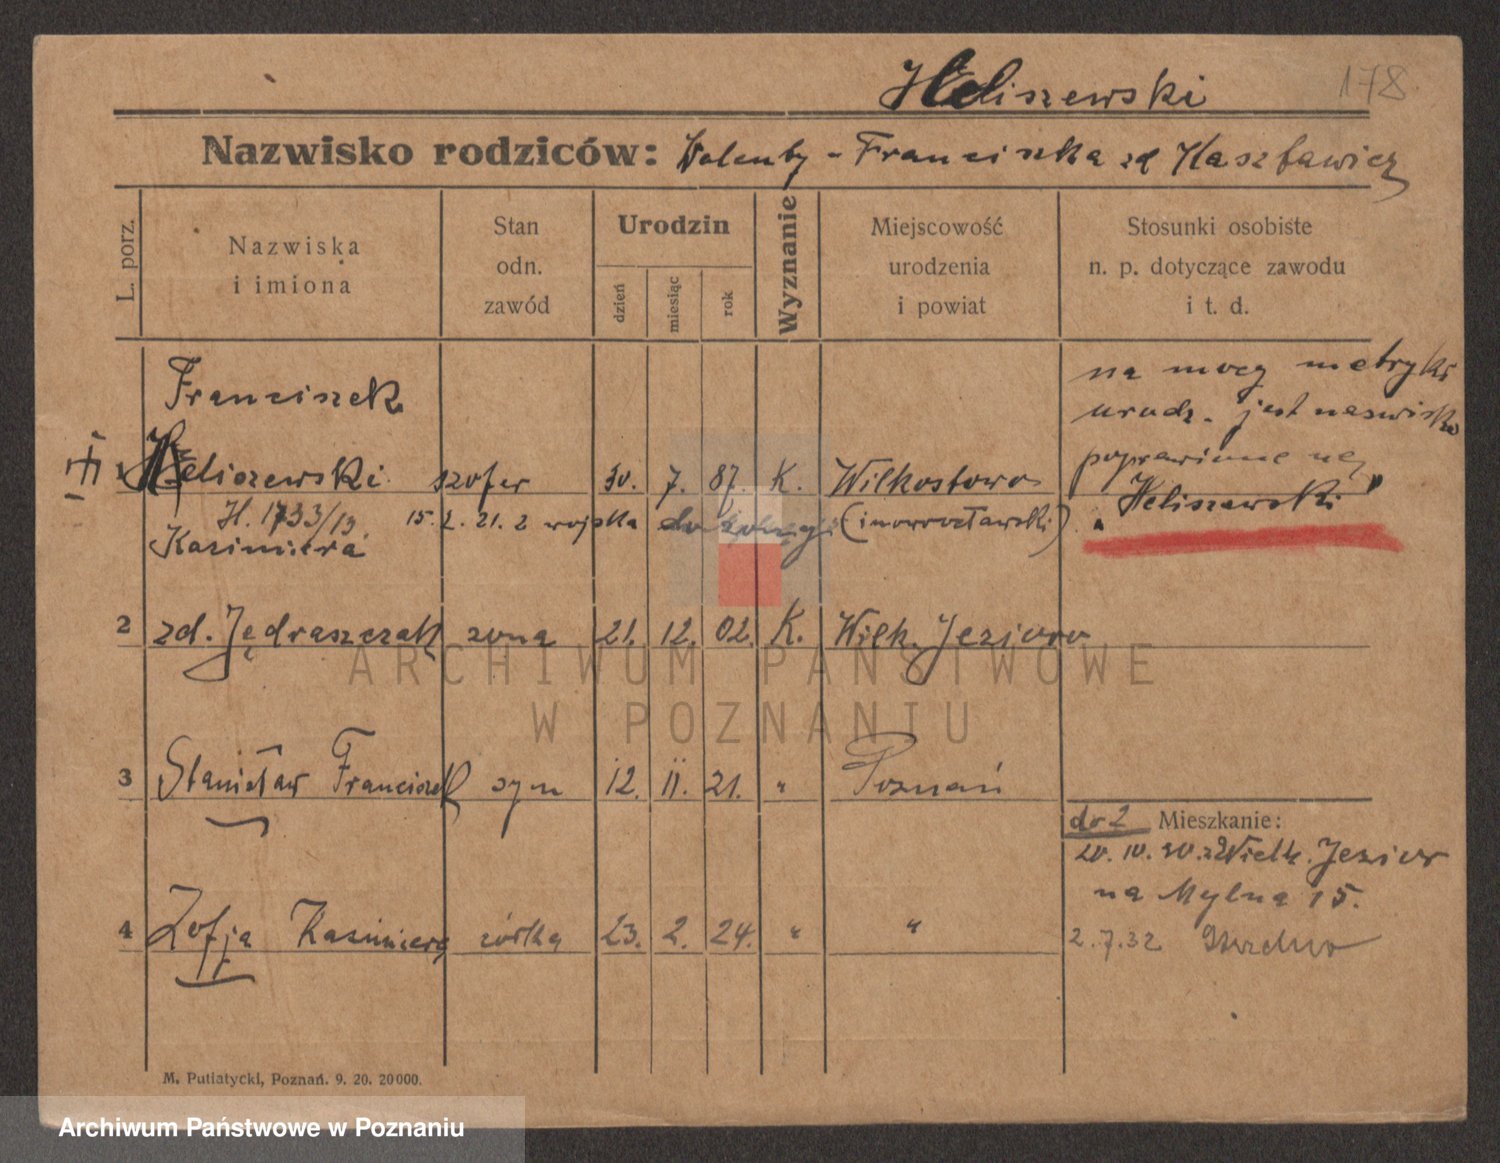 Heliszewski 178
Nazwisko rodziców: Walenty - Franciszka zd Kasztawicz
L. porz.
Nazwiska
i imiona
Stan
odn.
zawód
Urodzin
dzień
miesiąc
rok
Wyznanie
Miejscowość
urodzenia
i powiat
Stosunki osobiste
n. p. dotyczące zawodu
i t. d.
Franciszek
Heliszewski szofer 30. 7. 87. K. Wilkostowo
H. 1733/19 15. 2. 21. z wojska (inowrocławski)
na mocy metryki
urodz. jest nazwisko
poprawione na
„Heliszewski"
Kazimiera
2 zd. Jędraszczak żona 21. 12. 02. K. Wilk. Jezioro
3 Stanisław Franciszek syn 12. II. 21. " Poznań
4 Zofja Kazimiera córka 23. 2. 24. " "
do 2 Mieszkanie:
20. 10. 30. z Wielk. Jezior
na Mylna 15.
2.7.32
M. Putiatycki, Poznań. 9. 20. 20000.
ARCHIWUM PAŃSTWOWE
W POZNANIU
Archiwum Państwowe w Poznaniu